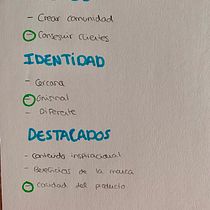 - Crear comunidad
- Conseguir clientes
IDENTIDAD
- Cercana
- Original
- Diferente
DESTACADOS
- Contenido inspiracional
- Beneficios de la marca
- Calidad del producto